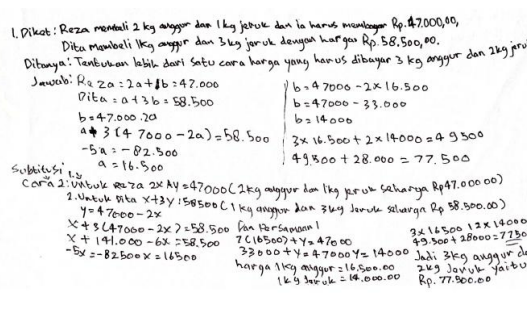 1. Dikat: Reza membali 2 kg anggur dan 1kg jeruk dan ia harus membayar Rp.47.000,00,
Dita Mambeli 1kg anggur dan 3kg jeruk dengan harga Rp.58.500,00.
Ditanya: Tentukan lebih dari satu cara harga yang harus dibayar 3 kg anggur dan 2kg jeru
Jawab: Reza = 2a+1b = 47.000
Dita = a+3b = 58.500
b = 47.000.2a
a+3(47000-2a) = 58.500
-5a = -82.500
a = 16.500
b = 47000 - 2x16.500
b = 47000 - 33.000
b = 14000
3x16.500 + 2x14000 = 49500
49.500 + 28.000 = 77.500
Subtitusi
Cara 2: 1. Untuk Reza 2x Ay = 47000 (2kg anggur dan 1kg jeruk seharga Rp47.000 00)
2. Untuk Dita x+3y : 58500 (1kg anggur dan 3kg Jeruk seharga Rp 58.500.00)
y = 47000 - 2x
x + 3(47000-2x) = 58.500
x + 141.000 - 6x = 58.500
-5x = -82500 x = 16500
Dan Persamaan 1
2(16500) + y = 47000
33000 + y = 47000 y = 14000
harga 1kg anggur = 16.500.00
1kg Jeruk = 14.000.00
3x16500 12x14000
49.500 + 28000 = 7750
Jadi 3kg anggur d
2kg Jeruk yaitu
Rp. 77.500.00